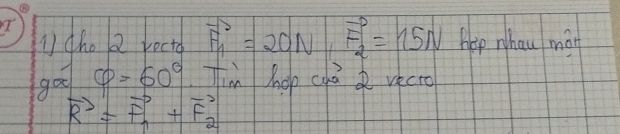 1) Cho 2 vectơ F₁⃗ = 20N, F₂⃗ = 15N hợp nhau một
góc φ = 60°. Tìm hợp của 2 vectơ
R⃗ = F₁⃗ + F₂⃗